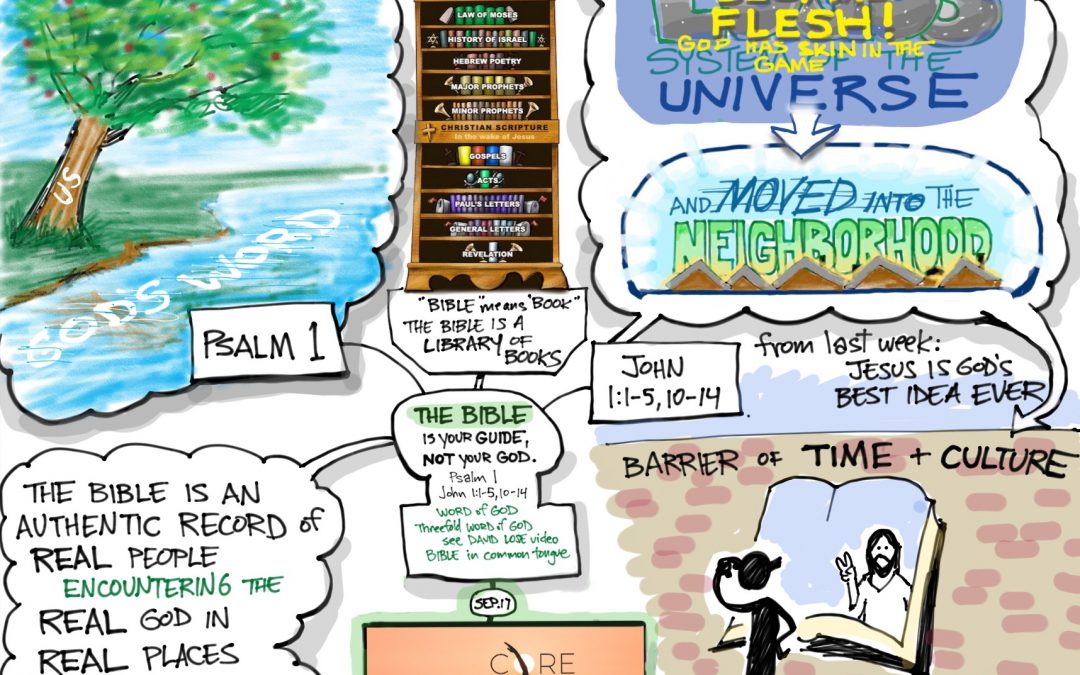 US
GOD'S WORD
PSALM 1
LAW OF MOSES
HISTORY OF ISRAEL
HEBREW POETRY
MAJOR PROPHETS
MINOR PROPHETS
CHRISTIAN SCRIPTURE
In the wake of Jesus
GOSPELS
ACTS
PAUL'S LETTERS
GENERAL LETTERS
REVELATION
"BIBLE" means "BOOK"
THE BIBLE IS A
LIBRARY OF
BOOKS
FLESH!
GOD HAS SKIN IN THE
GAME
SYSTEM OF THE
UNIVERSE
AND MOVED INTO THE
NEIGHBORHOOD
JOHN
1:1-5, 10-14
from last week:
JESUS IS GOD'S
BEST IDEA EVER
THE BIBLE
IS YOUR GUIDE,
NOT YOUR GOD.
Psalm 1
John 1:1-5, 10-14
WORD of GOD
Threefold WORD of GOD
see DAVID LOSE video
BIBLE in common tongue
SEP. 17
CORE
THE BIBLE IS AN
AUTHENTIC RECORD of
REAL PEOPLE
ENCOUNTERING THE
REAL GOD IN
REAL PLACES
BARRIER OF TIME + CULTURE